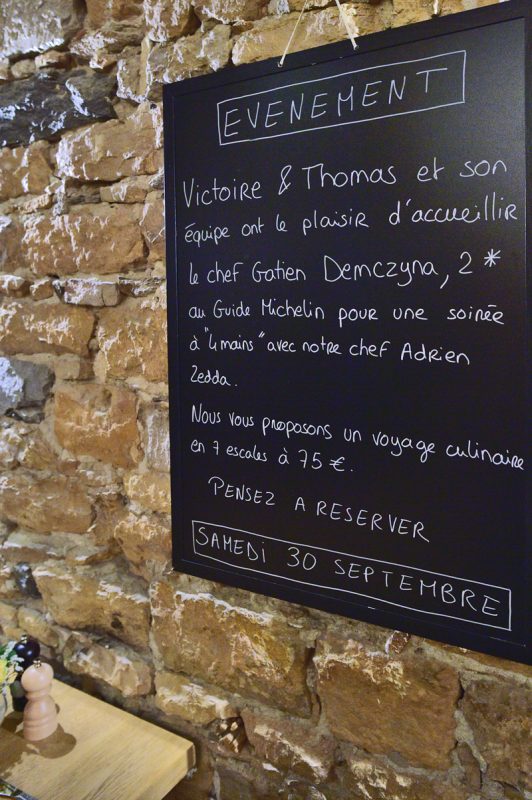 EVENEMENT
Victoire & Thomas et son
équipe ont le plaisir d'accueillir
le chef Gatien Demczyna, 2 *
au Guide Michelin pour une soirée
à "4 mains" avec notre chef Adrien
Zedda.
Nous vous proposons un voyage culinaire
en 7 escales à 75 €.
PENSEZ A RESERVER
SAMEDI 30 SEPTEMBRE